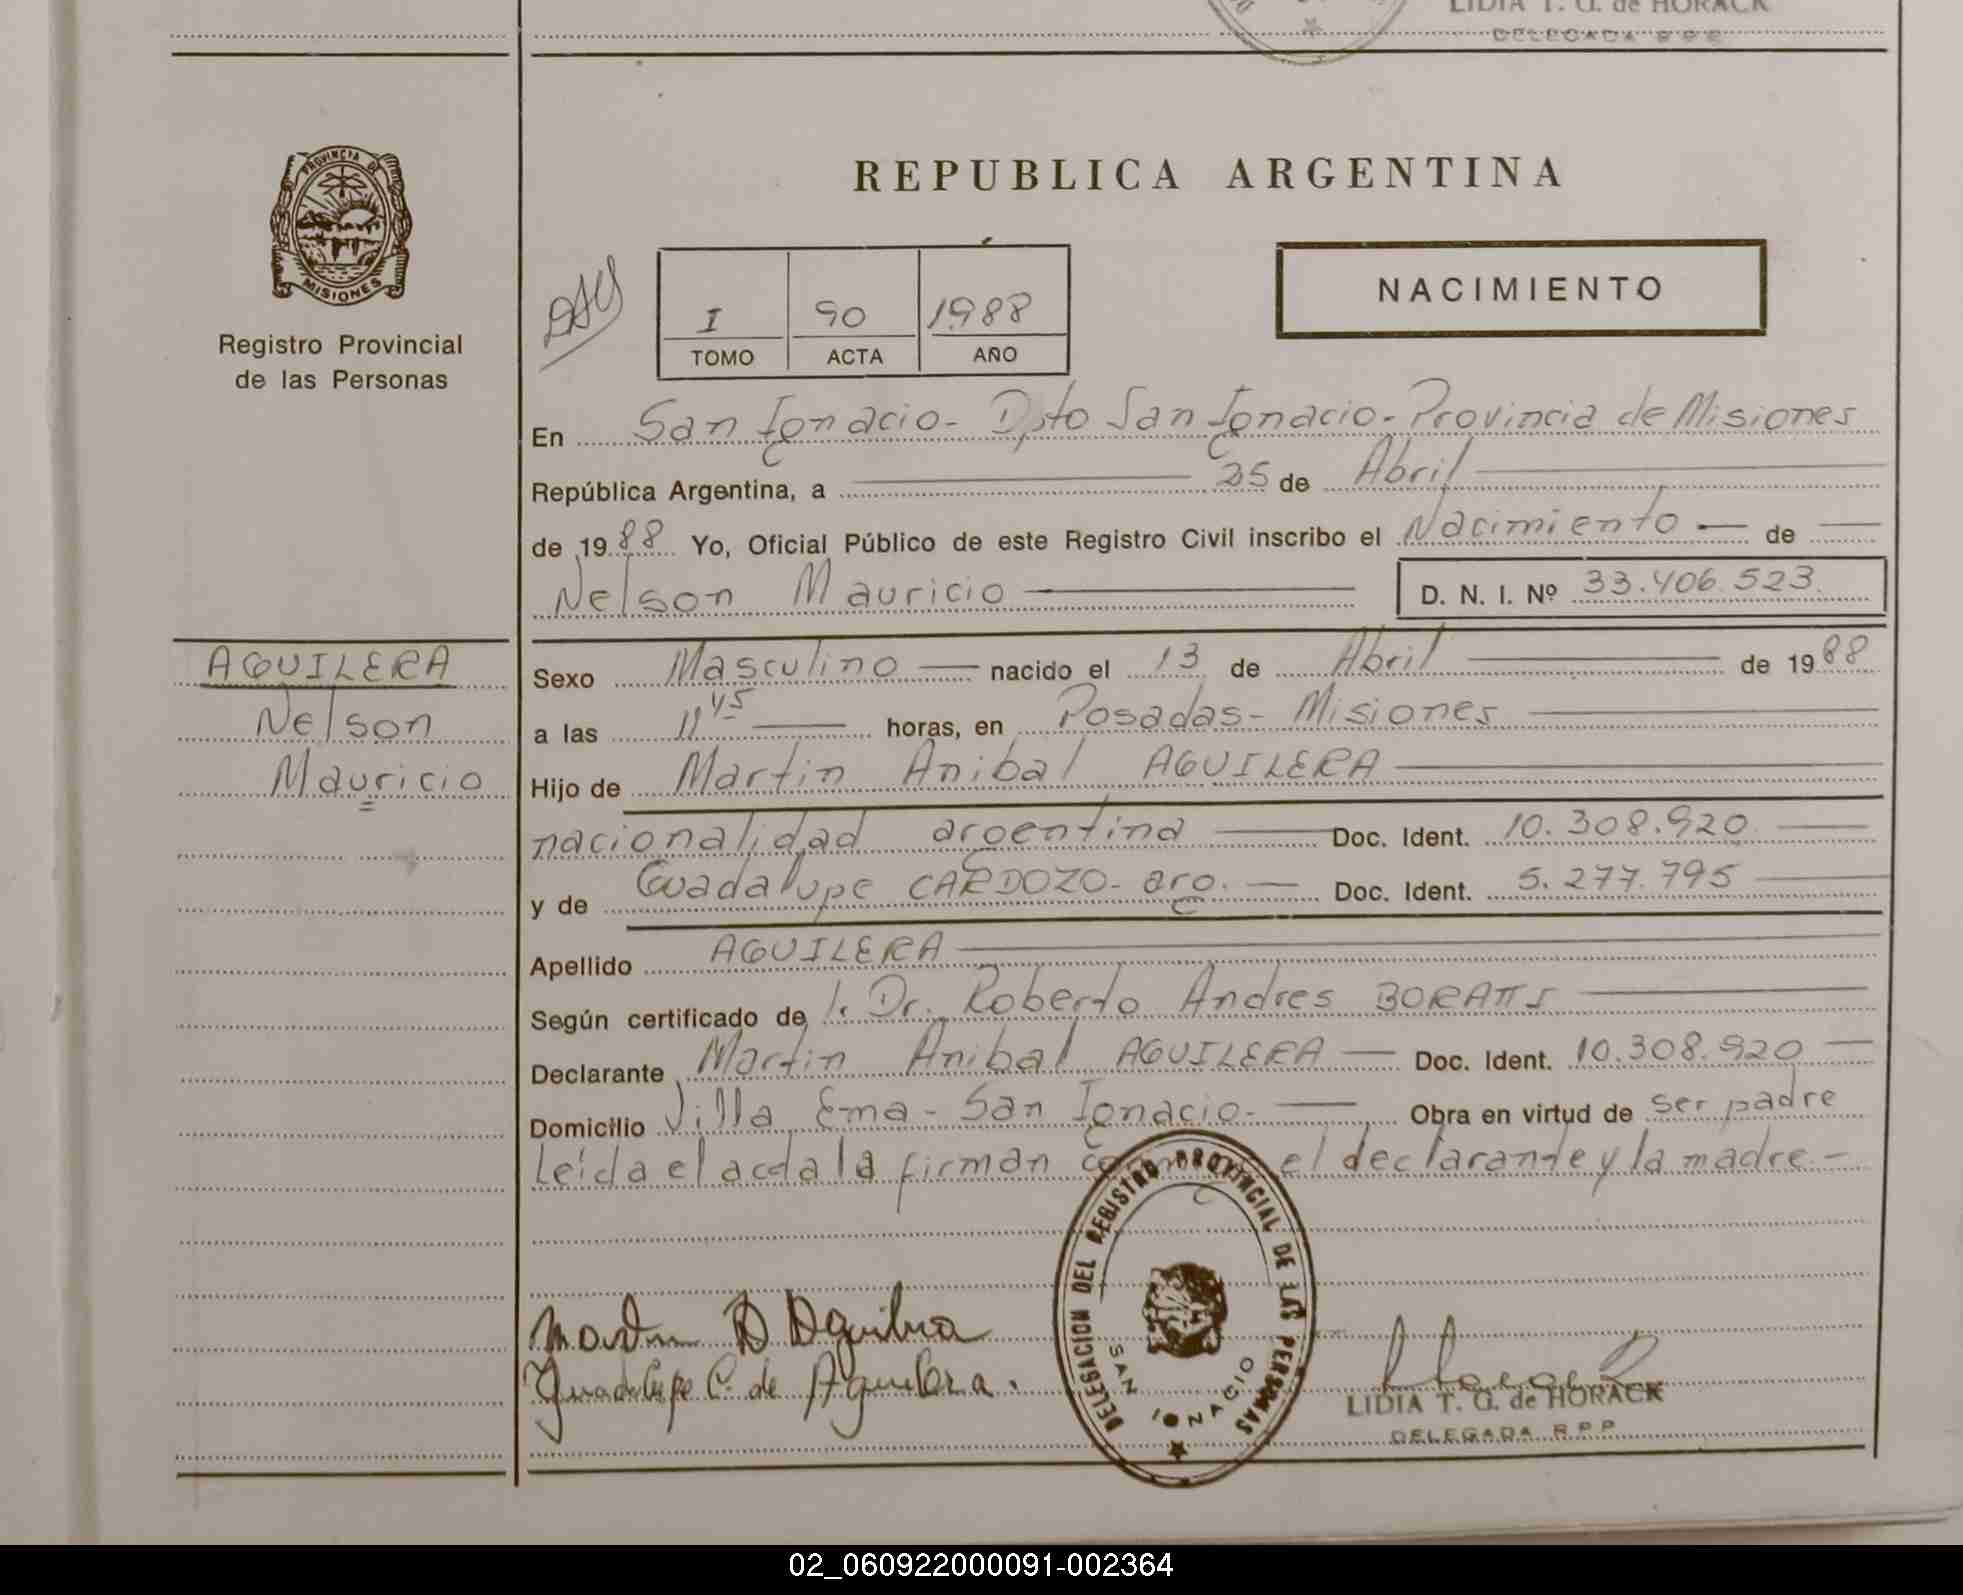 LIDIA T. G. de HORACK
DELEGADA R P P
PROVINCIA DE
MISIONES
Registro Provincial
de las Personas
REPUBLICA ARGENTINA
I 90 1988
TOMO ACTA AÑO
NACIMIENTO
En San Ignacio - Dpto San Ignacio - Provincia de Misiones
República Argentina, a 25 de Abril
de 1988 Yo, Oficial Público de este Registro Civil inscribo el Nacimiento de
Nelson Mauricio D. N. I. Nº 33.406.523
AGUILERA
Nelson
Mauricio
Sexo Masculino nacido el 13 de Abril de 1988
a las 11 45 horas, en Posadas - Misiones
Hijo de Martin Anibal AGUILERA
nacionalidad argentina Doc. Ident. 10.308.920
y de Guadalupe CARDOZO - arg. Doc. Ident. 5.277.795
Apellido AGUILERA
Según certificado de l. Dr. Roberto Andres BORATTI
Declarante Martin Anibal AGUILERA Doc. Ident. 10.308.920
Domicilio Villa Ema - San Ignacio - Obra en virtud de ser padre
Leida el acta la firman conmigo el declarante y la madre -
DELEGACION DEL REGISTRO PROVINCIAL DE LAS PERSONAS
SAN IGNACIO
Martin A Aguilera
Guadalupe C. de Aguilera.
LIDIA T. G. de HORACK
DELEGADA R P P
02_060922000091-002364